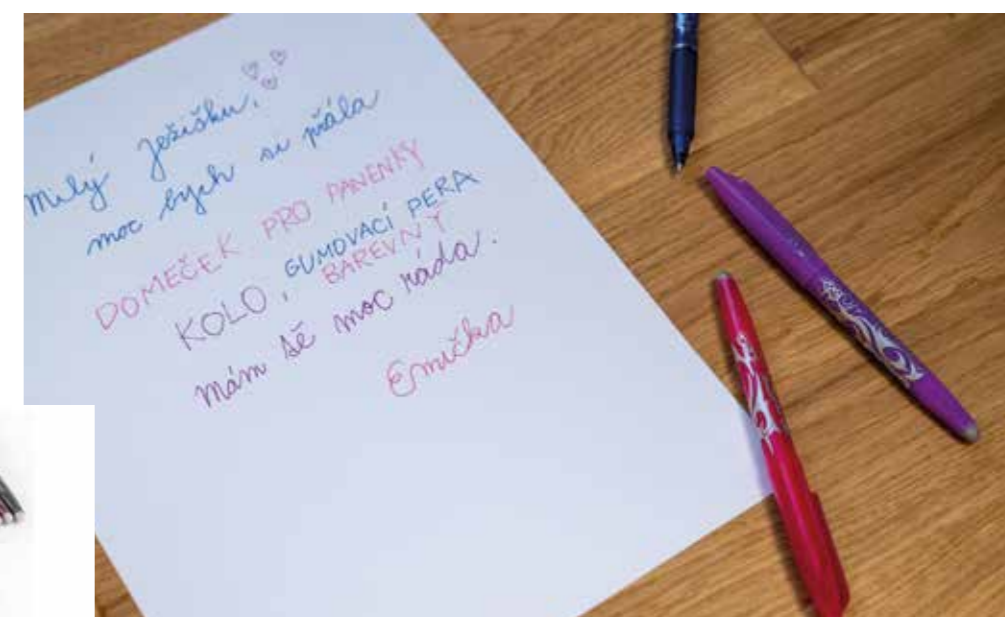 Milý Ježíšku,
moc bych si přála
DOMEČEK PRO PANENKY
KOLO, GUMOVACÍ PERA
BAREVNÝ
mám sě moc ráda.
Emička